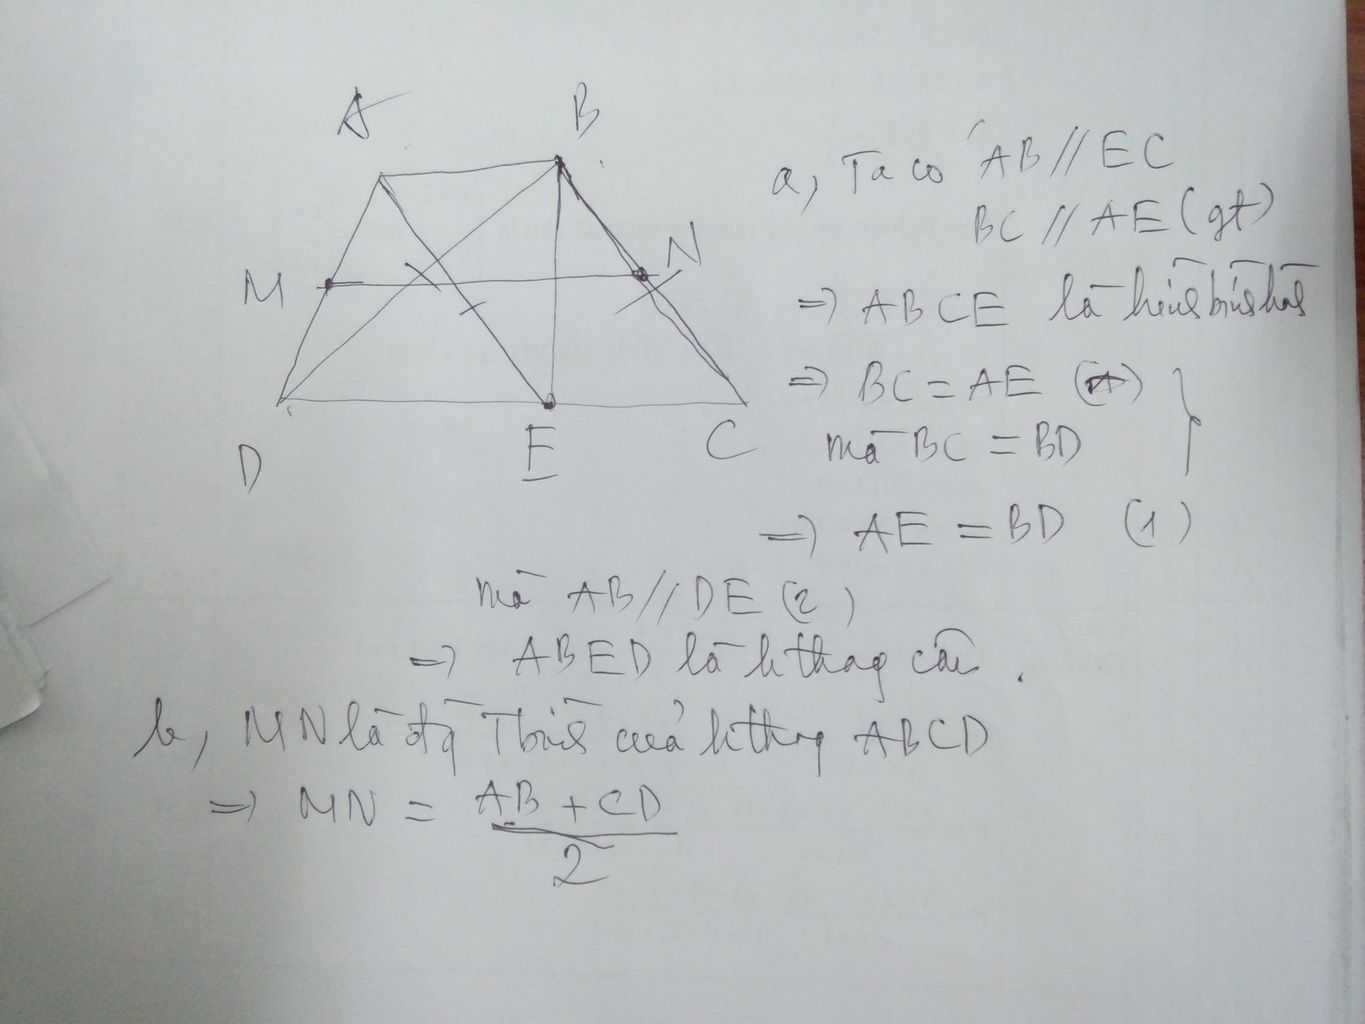 A
B
M
N
D
E
C
a, Ta có AB // EC
BC // AE (gt)
=> ABCE là hình bình hành
=> BC = AE
mà BC = BD
=> AE = BD (1)
mà AB // DE (2)
=> ABED là hthang cân.
b, MN là đg Tbình của hthang ABCD
=> MN = AB + CD
2